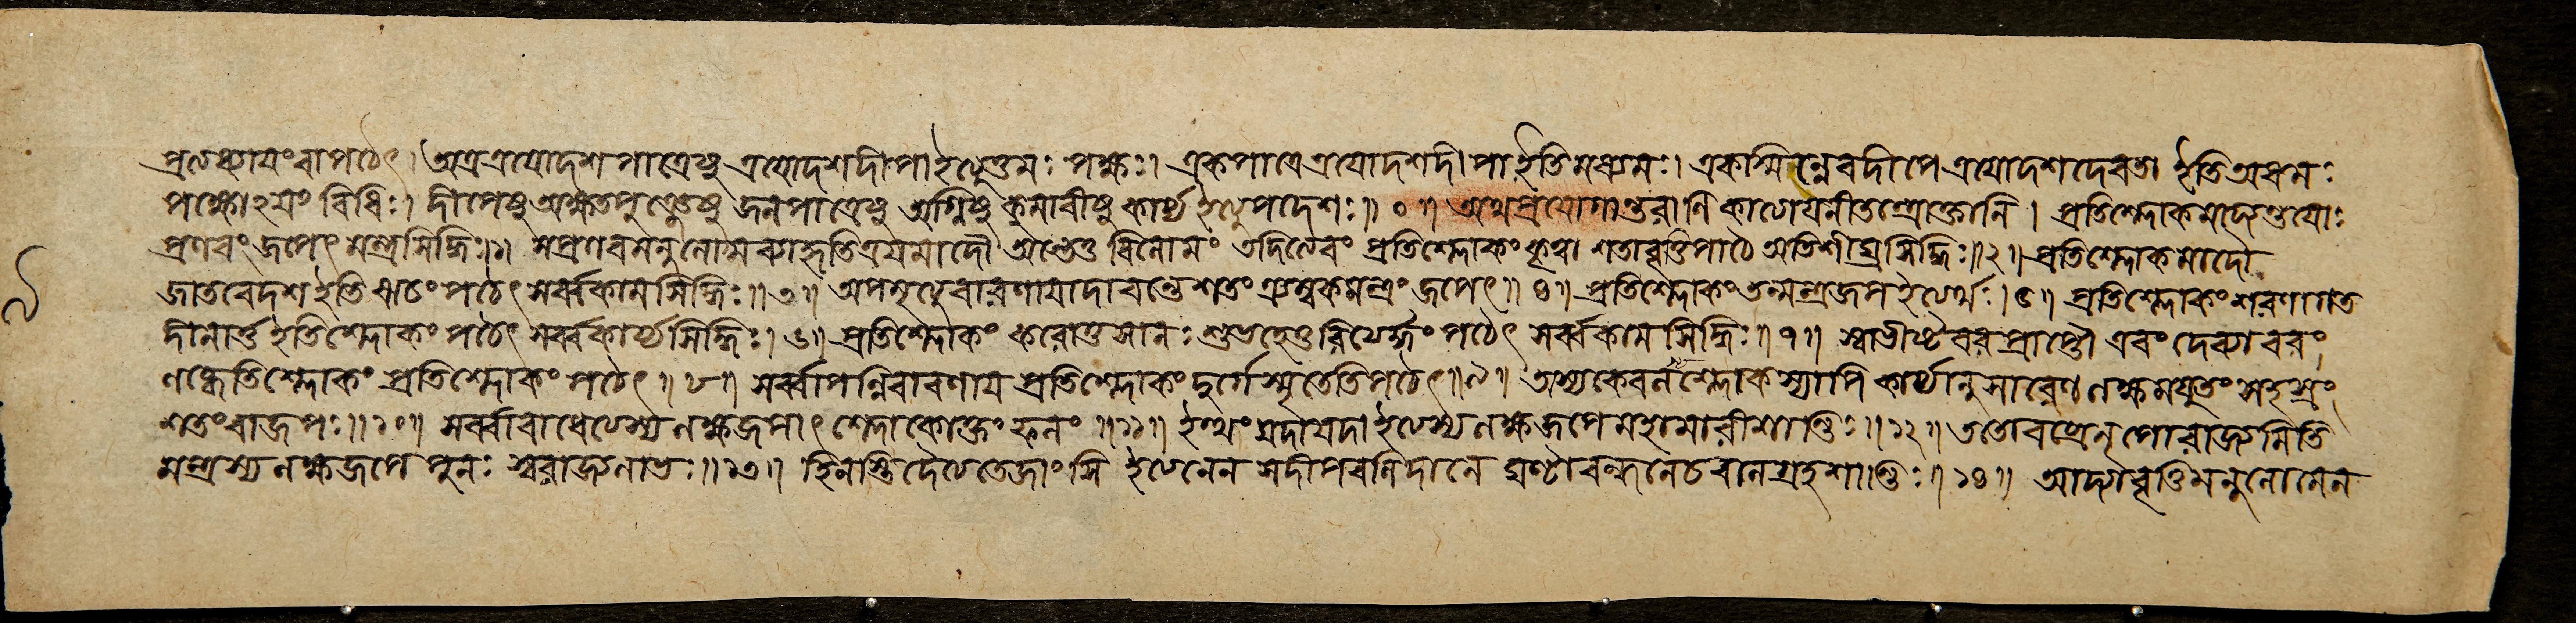 প্রত্যধ্যাযংবাপঠেৎ। অত্রত্রযোদশপাত্রেষু ত্রযোদশদীপা ইত্যুত্তমঃ পক্ষঃ। একপাত্রেত্রযোদশদীপা ইতিমধ্যমঃ। একস্মিন্নেবদীপেত্রযোদশদেবতা ইতিঅধমঃ
পক্ষোঽযং বিধিঃ। দীপেষু অক্ষতপুঞ্জেষু জলপাত্রেষু অগ্নিষু কুমারীষু কার্য্য ইত্যুপদেশঃ॥ ০ ॥ অথপ্রযোগান্তরাণি কাত্যাযনীতন্ত্রোক্তানি। প্রতিশ্লোকমাদ্যন্তযোঃ
প্রণবংজপেৎ মন্ত্রসিদ্ধিঃ॥১॥ সপ্রণবমনুলোমব্যাহৃতিত্রযমাদৌ অন্তেতু বিলোমং তদিত্যেবং প্রতিশ্লোকং কৃত্বা শতাবৃত্তিপাঠে অতিশীঘ্রসিদ্ধিঃ॥২॥ প্রতিশ্লোকমাদৌ
৯
জাতবেদস ইতি ঋচং পঠেৎ সর্ব্বকামসিদ্ধিঃ॥৩॥ অপমৃত্যুবারণাযাদাবন্তেশতং ত্র্যম্বকমন্ত্রং জপেৎ॥ ৪॥ প্রতিশ্লোকংতন্মন্ত্রজপ ইত্যর্থঃ।৫॥ প্রতিশ্লোকংশরণাগত
দীনার্ত্ত ইতিশ্লোকং পঠেৎ সর্ব্বকার্য্যসিদ্ধিঃ।৬॥ প্রতিশ্লোকং করোতুসানঃ শুভহেতুরিত্যর্দ্ধং পঠেৎ সর্ব্বকামসিদ্ধিঃ॥৭॥ স্বাভীষ্টবরপ্রাপ্তৌ এবং দেব্যাবরং
লব্ধেতিশ্লোকং প্রতিশ্লোকং পঠেৎ॥ ৮॥ সর্ব্বাপন্নিবারণায প্রতিশ্লোকং দুর্গেস্মৃতেতিপঠেৎ॥৯॥ অস্যকেবলশ্লোকস্যাপি কার্য্যানুসারেণ লক্ষমযুতং সহস্রং
শতংবাজপঃ॥১০॥ সর্ব্বাবাধেত্যস্য লক্ষজপাৎ শ্লোকোক্তং ফলং ॥১১॥ ইত্থংযদাযদা ইত্যস্য লক্ষজপে মহামারীশান্তিঃ॥১২॥ ততোবব্রেনৃপোরাজ্যমিতি
মন্ত্রস্য লক্ষজপে পুনঃ স্বরাজ্যলাভঃ॥১৩॥ হিনস্তিদৈত্যতেজাংসি ইত্যনেন সদীপবলিদানে ঘণ্টাবন্ধনেচবালগ্রহশান্তিঃ॥১৪॥ আদ্যাবৃত্তিমনুলোমেন